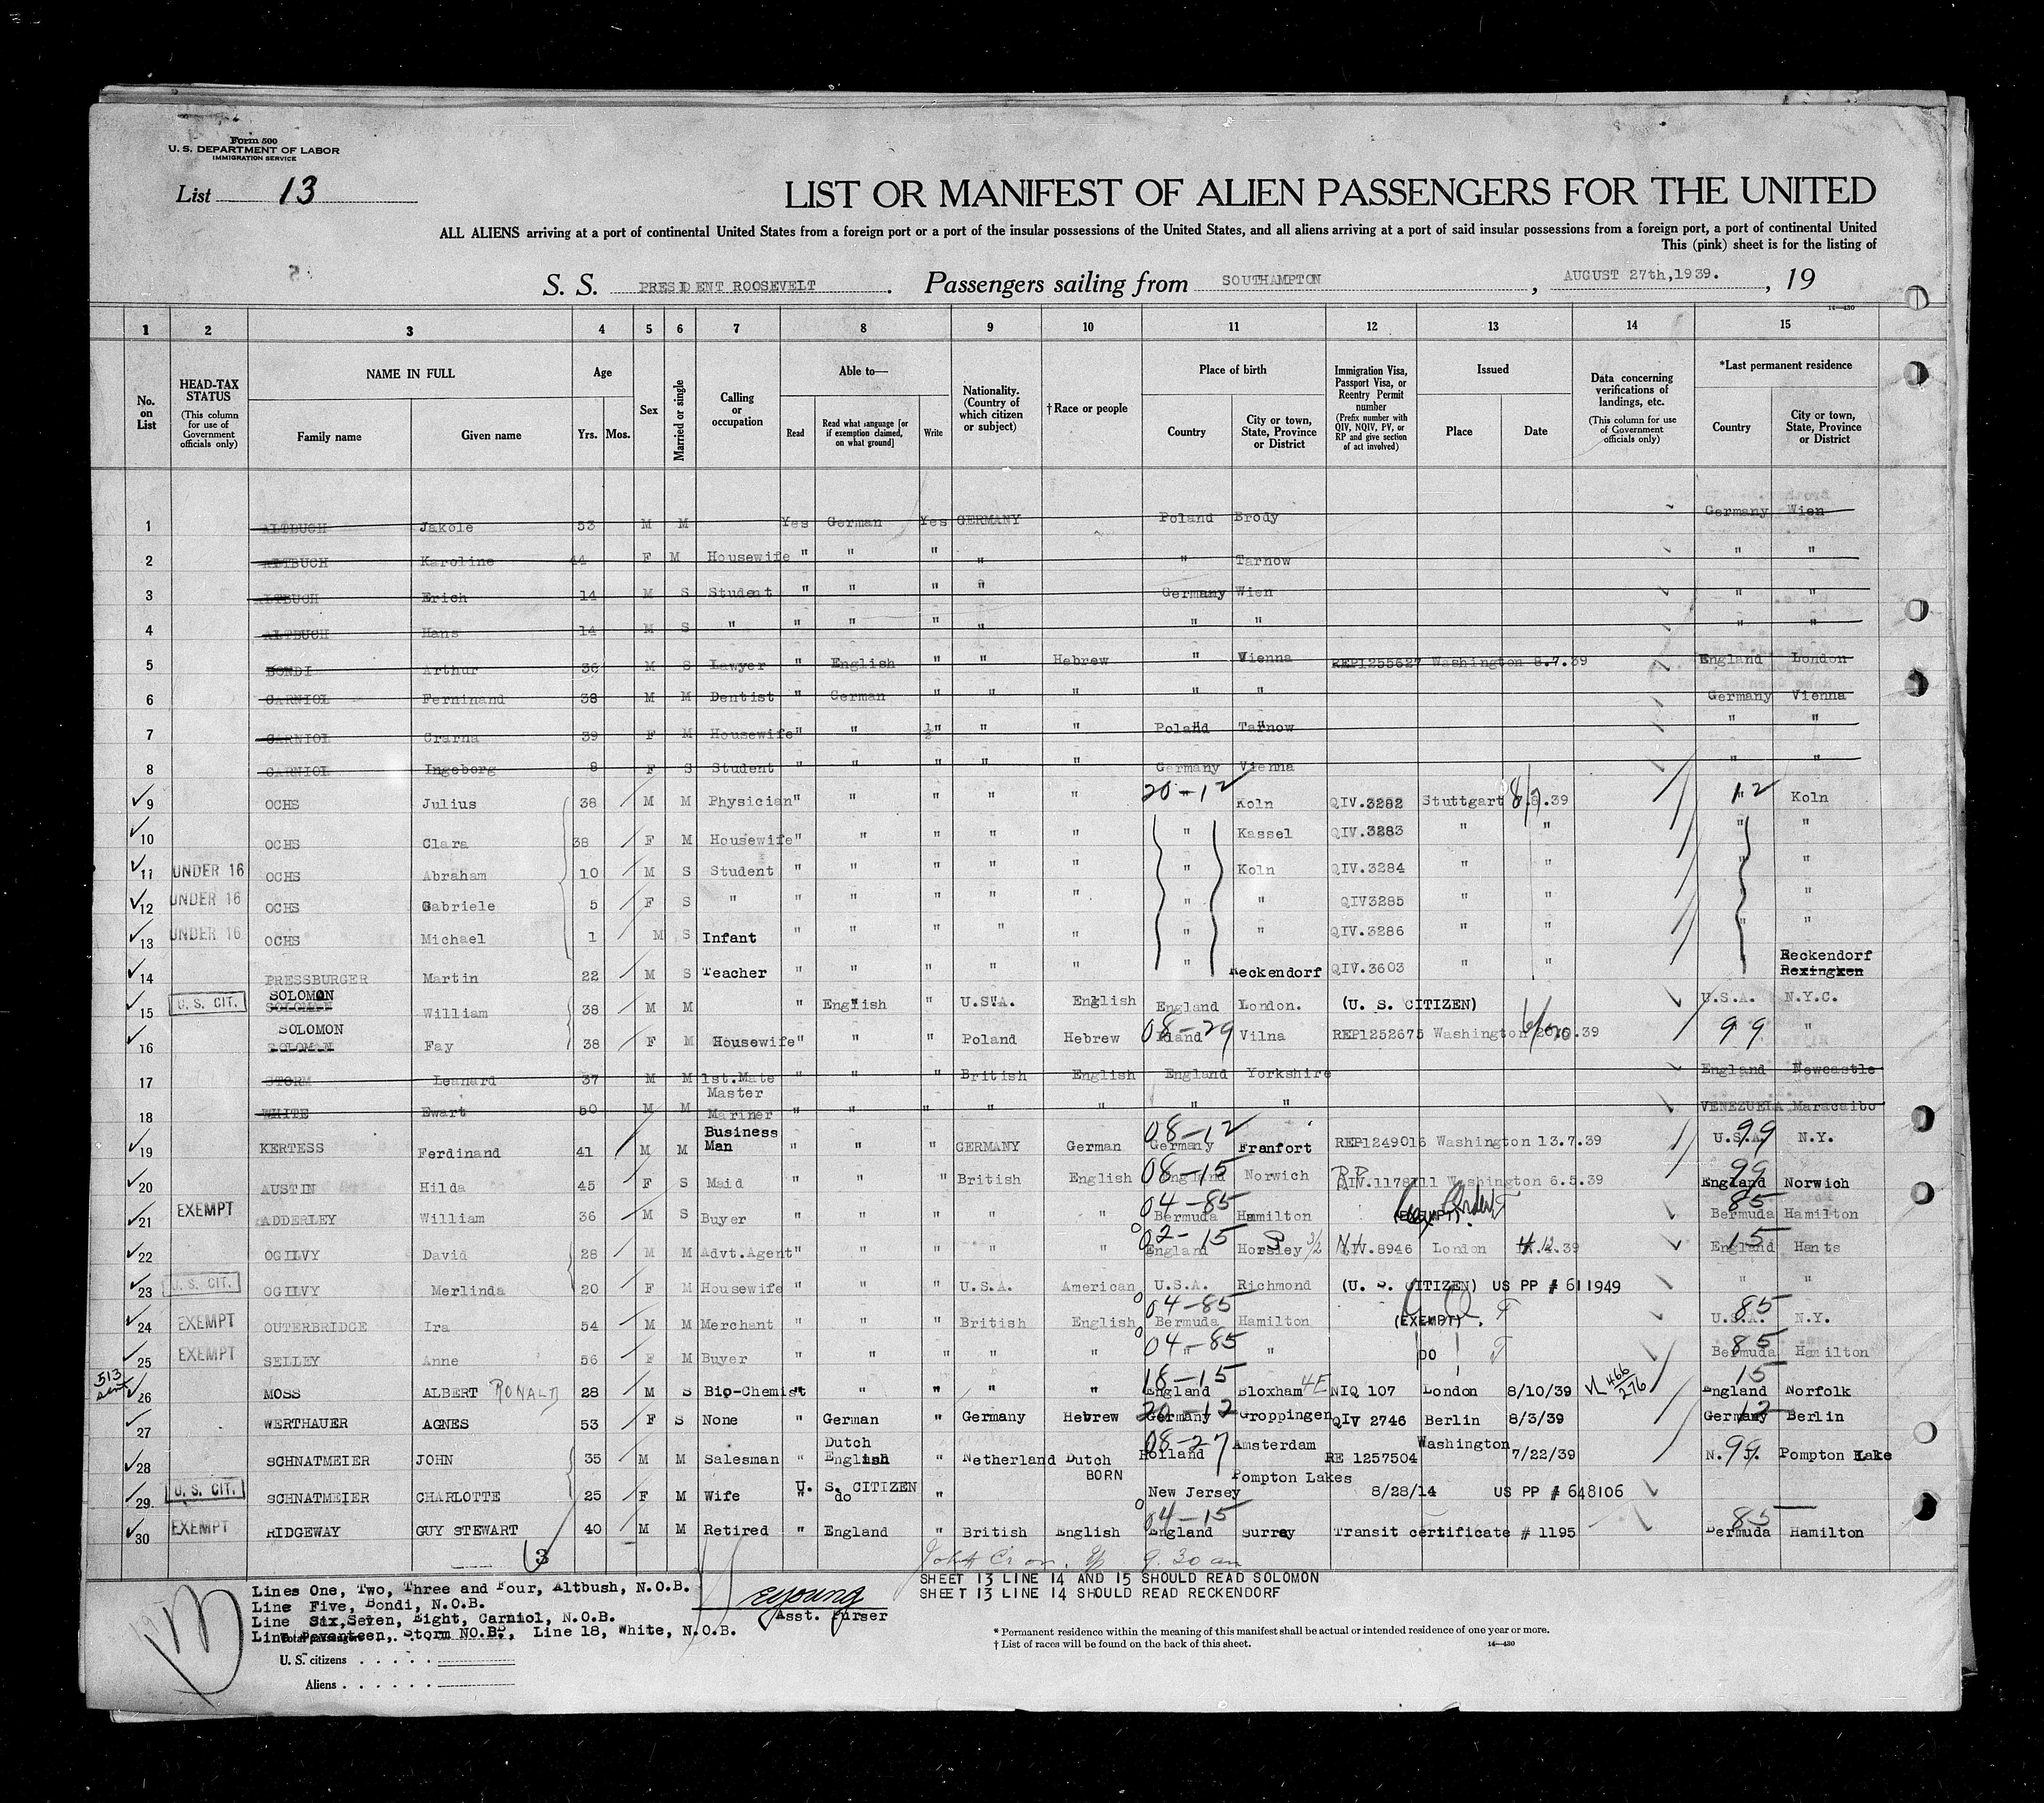 Form 500
U. S. DEPARTMENT OF LABOR
IMMIGRATION SERVICE
List 13
LIST OR MANIFEST OF ALIEN PASSENGERS FOR THE UNITED
ALL ALIENS arriving at a port of continental United States from a foreign port or a port of the insular possessions of the United States, and all aliens arriving at a port of said insular possessions from a foreign port, a port of continental United
This (pink) sheet is for the listing of
S. S. PRESIDENT ROOSEVELT. Passengers sailing from SOUTHAMPTON, AUGUST 27th, 1939., 19
14—430
1 2 3 4 5 6 7 8 9 10 11 12 13 14 15
No. on List
HEAD-TAX STATUS (This column for use of Government officials only)
NAME IN FULL
Family name
Given name
Age
Yrs. Mos.
Sex
Married or single
Calling or occupation
Able to—
Read
Read what language [or if exemption claimed, on what ground]
Write
Nationality. (Country of which citizen or subject)
†Race or people
Place of birth
Country
City or town, State, Province or District
Immigration Visa, Passport Visa, or Reentry Permit number (Prefix number with QIV, NQIV, PV, or RP and give section of act involved)
Issued
Place
Date
Data concerning verifications of landings, etc. (This column for use of Government officials only)
*Last permanent residence
Country
City or town, State, Province or District
1 ALTBUCH Jakole 53 M M Yes German Yes GERMANY Poland Brody Germany Wien
2 ALTBUCH Karoline 44 F M Housewife " " " " " Tarnow " "
3 ALTBUCH Erich 14 M S Student " " " " Germany Wien " "
4 ALTBUCH Hans 14 M S " " " " " " " " "
5 BONDI Arthur 36 M S Lawyer " English " " Hebrew " Vienna REP1255627 Washington 8.7.39 England London
6 CARNIOL Ferninand 38 M M Dentist " German " " " " " Germany Vienna
7 CARNIOL Crarna 39 F M Housewife " " ½" " " Poland Tarnow " "
8 CARNIOL Ingeborg 8 F S Student " " " " " Germany Vienna " "
9 OCHS Julius 38 M M Physician " " " " " 20-12 " Koln QIV.3282 Stuttgart 8.39 12 " Koln
10 OCHS Clara 38 F M Housewife " " " " " " Kassel QIV.3283 " " " "
11 UNDER 16 OCHS Abraham 10 M S Student " " " " " " Koln QIV.3284 " " " "
12 UNDER 16 OCHS Gabriele 5 F S " " " " " " " " QIV3285 " " " "
13 UNDER 16 OCHS Michael 1 M S Infant " " " " " " " QIV.3286 " " " "
14 PRESSBURGER Martin 22 M S Teacher " " " " " " Reckendorf QIV.3603 " " " Reckendorf Rexingxen
15 U. S. CIT. SOLOMON SOLOMAN William 38 M M " English " U.S.A. English England London. (U. S. CITIZEN) U.S.A. N.Y.C.
16 SOLOMON SOLOMAN Fay 38 F M Housewife " " " Poland Hebrew 08-29 Vilna REP1252675 Washington 39 99 "
17 STORM Leanard 37 M M 1st.Mate " " " British English England Yorkshire England Newcastle
18 WHITE Ewart 50 M M Master Mariner " " " " " " " VENEZUELA Maracaibo
19 KERTESS Ferdinand 41 M M Business Man " " " GERMANY German 08-12 Germany Franfort REP1249016 Washington 13.7.39 U.S.A. 99 N.Y.
20 AUSTIN Hilda 45 F S Maid " " " British English 08-15 England Norwich Washington 6.5.39 99 England Norwich
21 EXEMPT ADDERLEY William 36 M S Buyer " " " " " 04-85 Bermuda Hamilton (EXEMPT) 85 Bermuda Hamilton
22 OGILVY David 28 M M Advt.Agent " " " " " 02-15 England Horsley QIV.8946 London 12.39 15 England Hants
23 U. S. CIT. OGILVY Merlinda 20 F M Housewife " " " U.S.A. American U.S.A. Richmond (U. S. CITIZEN) US PP # 611949 " "
24 EXEMPT OUTERBRIDGE Ira 54 M M Merchant " " " British English 04-85 Bermuda Hamilton (EXEMPT) 85 U.S.A. N.Y.
25 EXEMPT SELLEY Anne 56 F M Buyer " " " " " 04-85 " " DO 85 Bermuda Hamilton
513 26 MOSS ALBERT RONALD 28 M S Bio-Chemist " " " " " 18-15 England Bloxham NIQ 107 London 8/10/39 466/276 15 England Norfolk
27 WERTHAUER AGNES 53 F S None " German " Germany Hebrew 20-12 Germany Groppingen QIV 2746 Berlin 8/3/39 12 Germany Berlin
28 SCHNATMEIER JOHN 35 M M Salesman " Dutch English " Netherland Dutch 08-27 Holland Amsterdam RE 1257504 Washington 7/22/39 N. J. 99 Pompton Lake
29 U. S. CIT. SCHNATMEIER CHARLOTTE 25 F M Wife " U. S. CITIZEN do " BORN New Jersey Pompton Lakes 8/28/14 US PP # 648106
30 EXEMPT RIDGEWAY GUY STEWART 40 M M Retired " England " British English 04-15 England Surrey Transit certificate # 1195 85 Bermuda Hamilton
9.30 am
Lines One, Two, Three and Four, Altbush, N.O.B.
Line Five, Bondi, N.O.B.
Line Six, Seven, Eight, Carniol, N.O.B.
Line Seventeen, Storm NO.B., Line 18, White, N.O.B.
Total passengers
U. S. citizens
Aliens
EYoung
Asst. Purser
SHEET 13 LINE 14 AND 15 SHOULD READ SOLOMON
SHEET 13 LINE 14 SHOULD READ RECKENDORF
* Permanent residence within the meaning of this manifest shall be actual or intended residence of one year or more.
† List of races will be found on the back of this sheet. 14—430